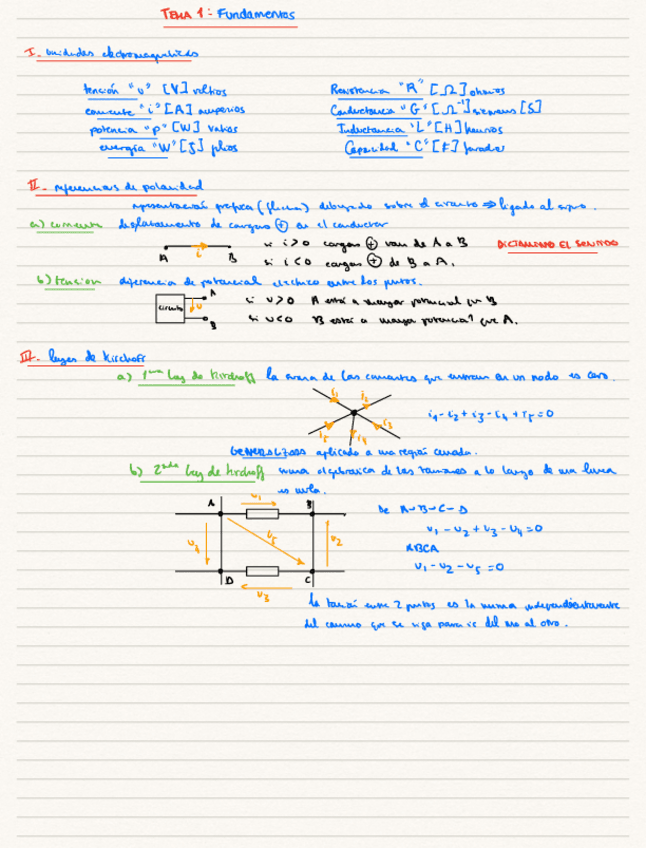 TEMA 1: Fundamentos
I. unidades electromagnéticas
tensión "u" [V] voltios
corriente "i" [A] amperios
potencia "p" [W] vatios
energía "W" [J] julios
Resistencia "R" [Ω] ohmios
Conductancia "G" [Ω⁻¹] siemens [S]
Inductancia "L" [H] henrios
Capacidad "C" [F] faradios
II. referencias de polaridad
representación gráfica (flecha) dibujada sobre el circuito ⇒ ligado al signo.
a) corriente desplazamiento de cargas ⊕ en el conductor
A i B
si i>0 cargas ⊕ van de A a B
DICTAMINANDO EL SENTIDO
si i<0 cargas ⊕ de B a A.
b) tension diferencia de potencial eléctrico entre los puntos.
circuito A u B
si u>0 A está a mayor potencial que B
si u<0 B está a mayor potencial que A.
III. leyes de Kirchoff
a) 1ª Ley de Kirchoff la suma de las corrientes que entran en un nodo es cero.
i1 i2 i3 i4 i5
i1-i2+i3-i4+i5=0
GENERALIZADA aplicado a una región cerrada.
b) 2ª Ley de Kirchoff suma algebraica de las tensiones a lo largo de una linea
es nula.
A u1 B
u4 u5 u2
D u3 C
De A-B-C-D
u1-u2+u3-u4=0
ABCA
u1-u2-u5=0
la tensión entre 2 puntos es la misma independientemente
del camino que se siga para ir del uno al otro.